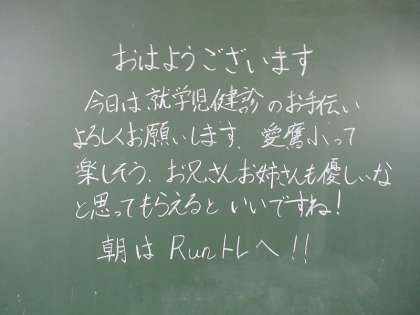 おはようございます
今日は就学児健診のお手伝い
よろしくお願いします。愛鷹小って
楽しそう、お兄さんお姉さんも優しいな
と思ってもらえるといいですね!
朝はRunトレへ!!